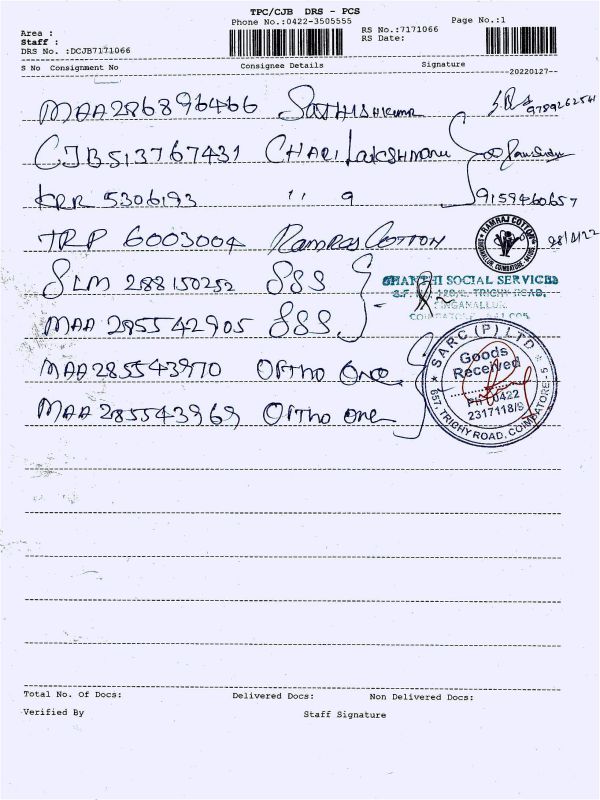 TPC/CJB DRS - PCS
Phone No.:0422-3505555
Page No.:1
Area :
Staff :
DRS No. :DCJB7171066
RS No.:7171066
RS Date:
S No Consignment No Consignee Details Signature
--20220127--
MAA286896466 Sathishkumar 9789262541
CJB513767431 CHARI Lakshmanu
KRR 5306193 '' 9 9159460657
TRP 6003004 Ramraj Cotton 28/1/22
RAMRAJ COTTON
SLM 288150252 SSS
SHANTHI SOCIAL SERVICES
TRICHY ROAD,
SINGANALLUR,
MAA 285542905 SSS
MAA285543970 Ortho One
MAA 285543969 Ortho One
SARC (P) LTD
Goods
Received
PH 0422
2317118/9
657, TRICHY ROAD, COIMBATORE - 5
Total No. Of Docs: Delivered Docs: Non Delivered Docs:
Verified By Staff Signature